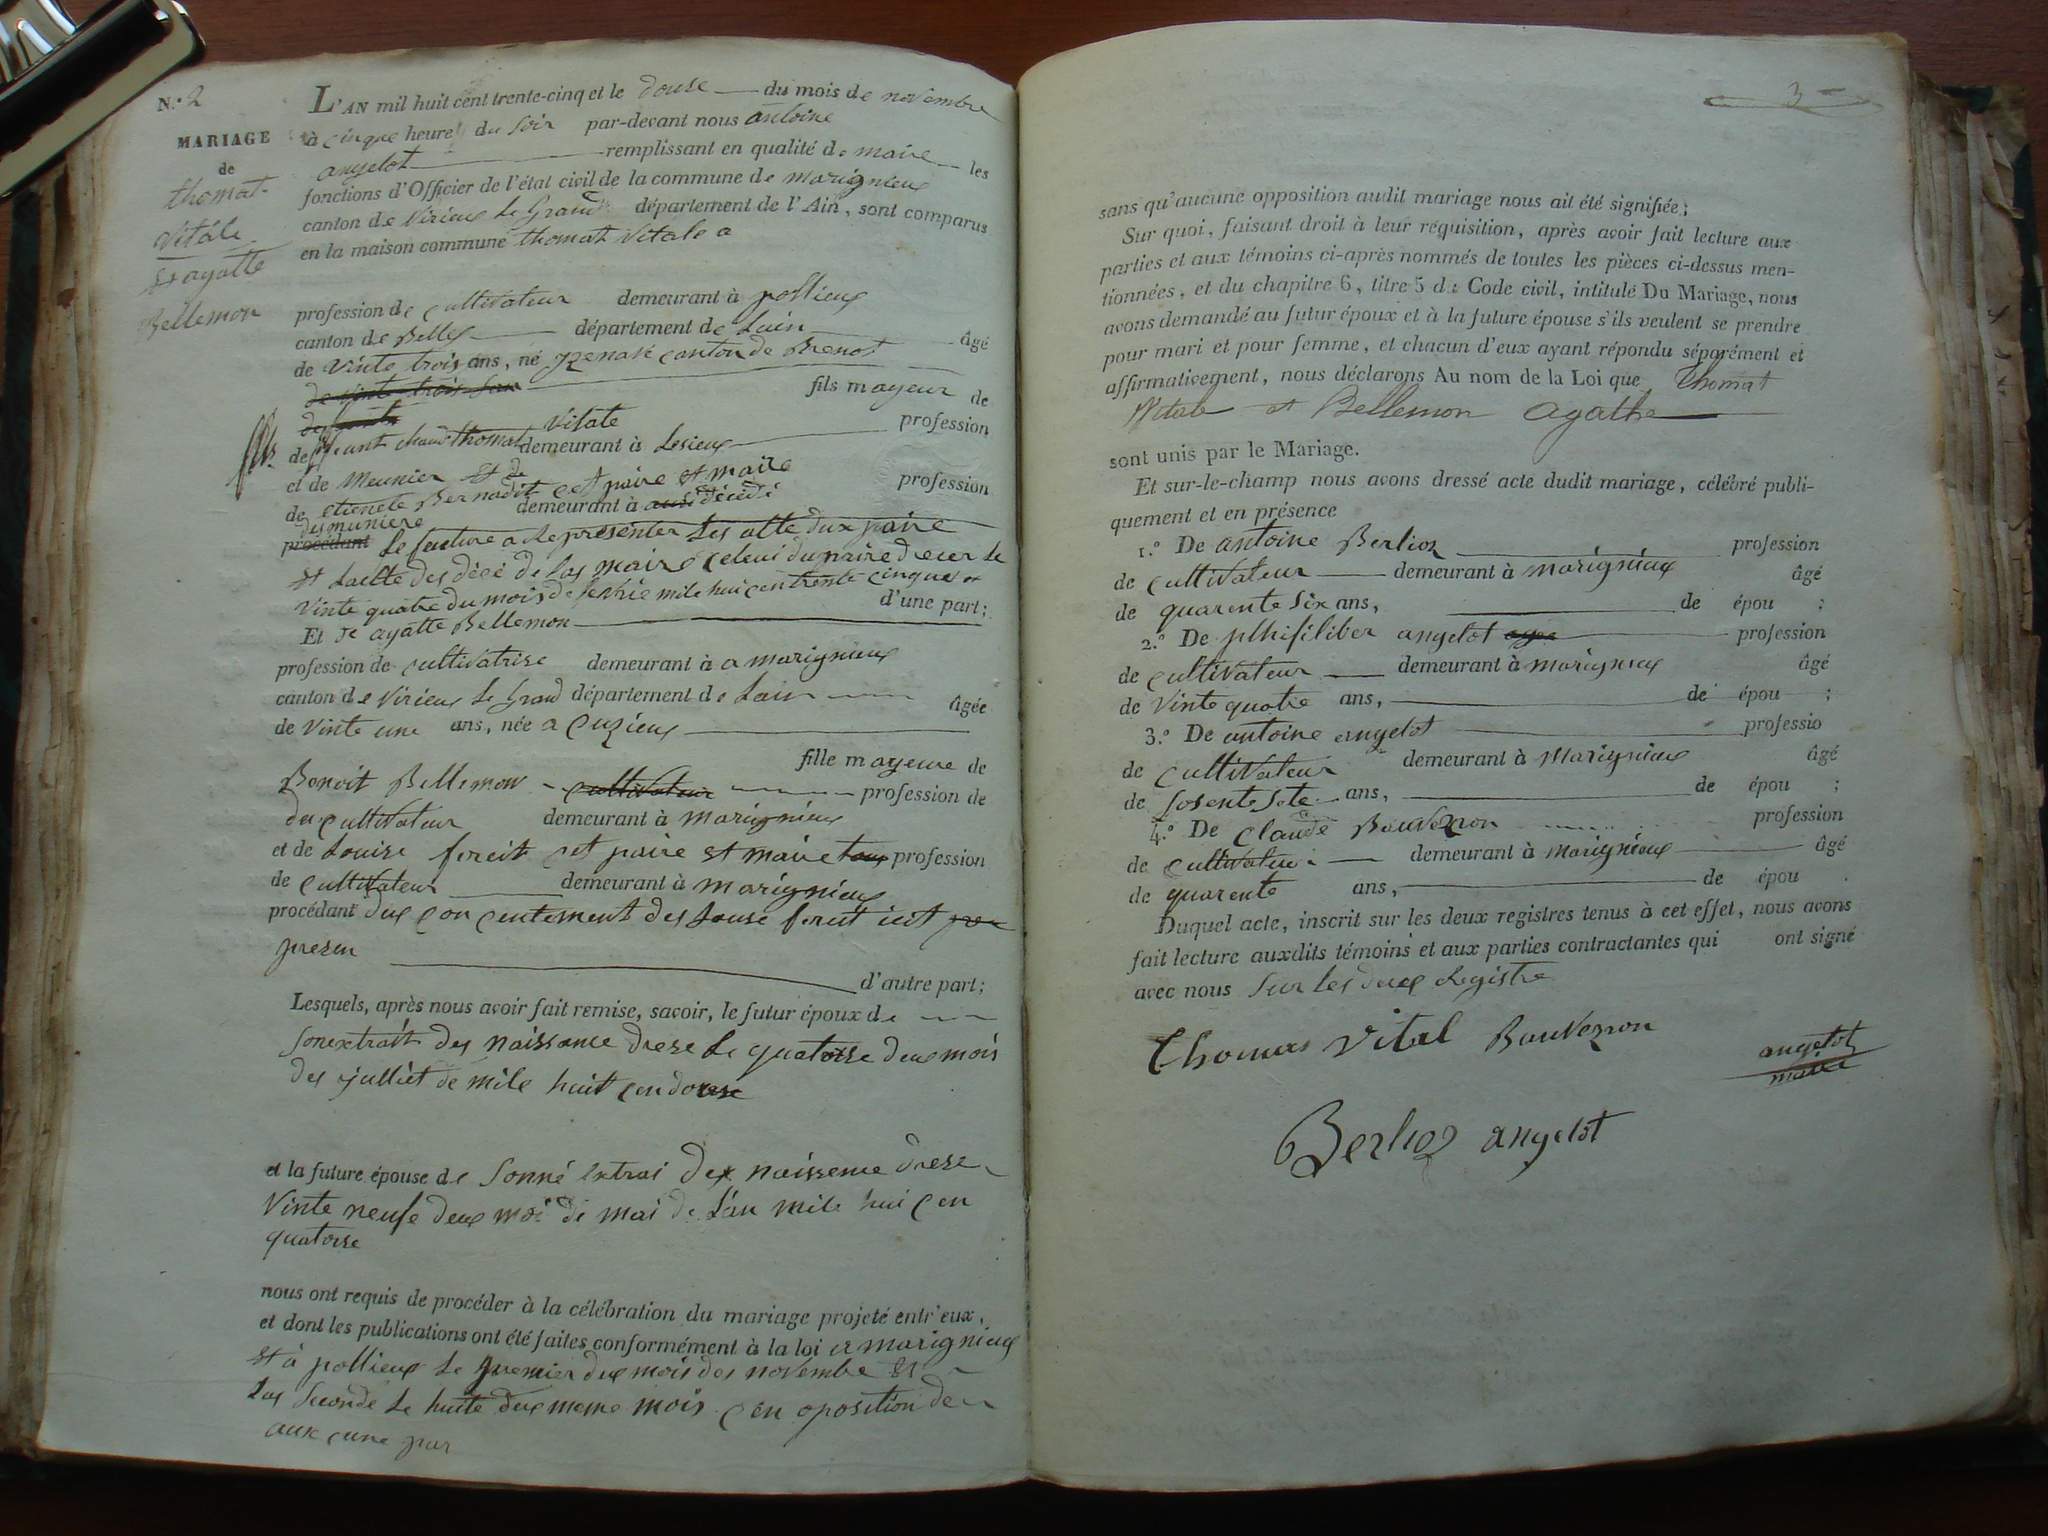 N.° 2
MARIAGE
de
thomat
Vitale
Et agatte
Bellemon
L'AN mil huit cent trente-cinq et le douse du mois de novembre
à cinque heure du soir par-devant nous antoine
angelot remplissant en qualité de maire les
fonctions d'Officier de l'état civil de la commune de marignieux
canton de Virieux le Grand département de l'Ain, sont comparus
en la maison commune thomat Vitale a
profession de cultivateur demeurant à pollieux
canton de Belley département de Lain âgé
de Vinte trois ans, né canton de Brenos
de vinte trois
fils mayeur de
de thomat Vitale profession
demeurant à Lesieux
et de Meunier Et de profession
de etienete Bernadit cet paire et maire
demeurant à décédé
procédant Le future a representer Les atte dux paire
Et Lacte des décé de Las maire celeui du paire
Vinte quatre du mois de mile hui cen trente cinque et
d'une part;
Et de agatte Bellemon
profession de cultivatrise demeurant à a marignieux
canton de Virieux Le Grand département de Lain âgée
de Vinte une ans, née a Cuzieux
fille mayeure de
Benoit Bellemon cultivateur profession de
de cultivateur demeurant à marignieux
et de Louise fereit cet paire et maire profession
de cultivateur demeurant à marignieux
procédant dux con centement des Louse fereit icit
presen
d'autre part;
Lesquels, après nous avoir fait remise, savoir, le futur époux de
son extrait des naissance drese Le quatorse deux mois
des julliet de mile huit cen douse
et la future épouse de sonné extrai dex naissence drese
Vinte neufe deux moi de mai de L'an mile hui cen
quatorse
nous ont requis de procéder à la célébration du mariage projeté entr'eux,
et dont les publications ont été faites conformément à la loi a marignieux
Et à pollieux Le premier dux mois des novembre Et
Las seconde Le huite dux meme mois cen oposition de
aux cune par
3
sans qu'aucune opposition audit mariage nous ait été signifiée;
Sur quoi, faisant droit à leur réquisition, après avoir fait lecture aux
parties et aux témoins ci-après nommés de toutes les pièces ci-dessus men-
tionnées, et du chapitre 6, titre 5 du Code civil, intitulé Du Mariage, nous
avons demandé au futur époux et à la future épouse s'ils veulent se prendre
pour mari et pour femme, et chacun d'eux ayant répondu séparément et
affirmativement, nous déclarons Au nom de la Loi que Thomat
Vitale et Bellemon Agathe
sont unis par le Mariage.
Et sur-le-champ nous avons dressé acte dudit mariage, célébré publi-
quement et en présence
1.° De antoine Berlioz profession
de cultivateur demeurant à marignieux âgé
de quarente six ans, de épou ;
2.° De phifiliber angelot profession
de cultivateur demeurant à marignieux âgé
de Vinte quatre ans, de épou ;
3.° De antoine angelot professio
de cultivateur demeurant à Marignieux âgé
de sosente sete ans, de épou ;
4.° De claude Bauverron profession
de cultivateur demeurant à marignieux âgé
de quarente ans, de épou .
Duquel acte, inscrit sur les deux registres tenus à cet effet, nous avons
fait lecture auxdits témoins et aux parties contractantes qui ont signé
avec nous sur les deux Registre
Thomas Vital Bauveron
angelot
maire
Berlioz angelot